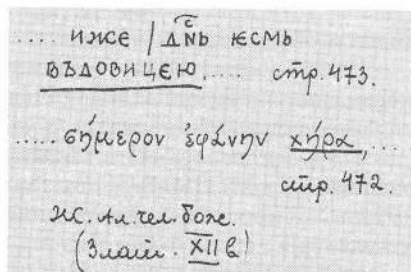 .... иже / дн҃ь ѥсмь
въдовицею.... стр. 473.
..... σήμερον ἐφάνην χήρα,...
стр. 472.
Ж. Ал. чел. бож.
(Злат. XII в)